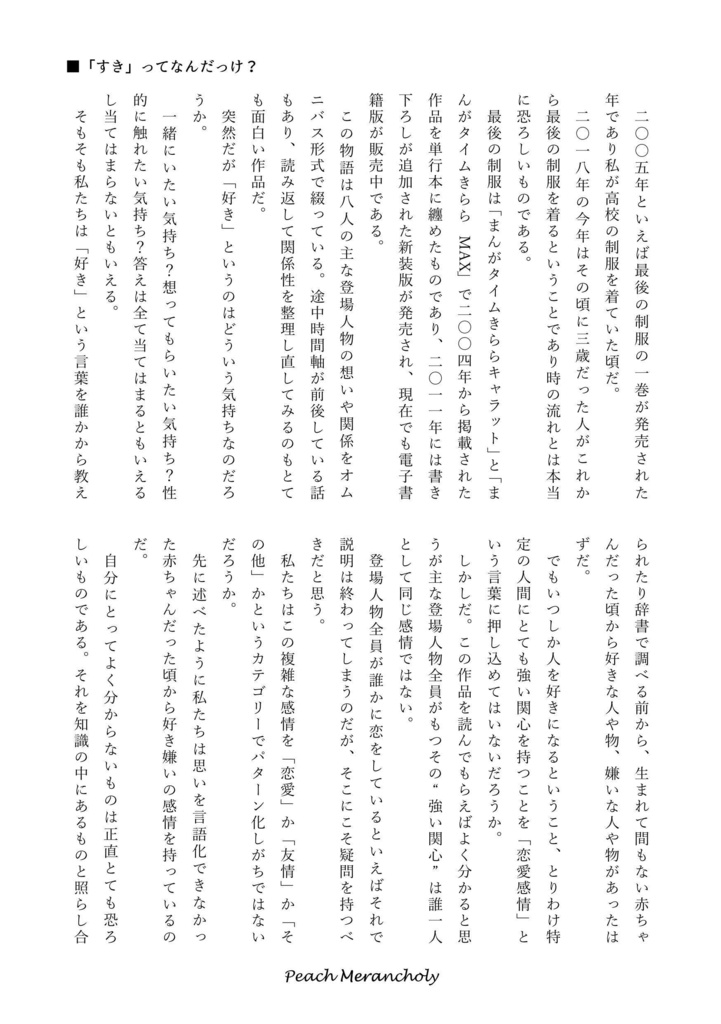 ■「すき」ってなんだっけ？
二〇〇五年といえば最後の制服の一巻が発売された
年であり私が高校の制服を着ていた頃だ。
二〇一八年の今年はその頃に三歳だった人がこれか
ら最後の制服を着るということであり時の流れとは本当
に恐ろしいものである。
最後の制服は「まんがタイムきららキャラット」と「ま
んがタイムきらら MAX」で二〇〇四年から掲載された
作品を単行本に纏めたものであり、二〇一一年には書き
下ろしが追加された新装版が発売され、現在でも電子書
籍版が販売中である。
この物語は八人の主な登場人物の想いや関係をオム
ニバス形式で綴っている。途中時間軸が前後している話
もあり、読み返して関係性を整理し直してみるのもとて
も面白い作品だ。
突然だが「好き」というのはどういう気持ちなのだろ
うか。
一緒にいたい気持ち？想ってもらいたい気持ち？性
的に触れたい気持ち？答えは全て当てはまるともいえる
し当てはまらないともいえる。
そもそも私たちは「好き」という言葉を誰かから教え
られたり辞書で調べる前から、生まれて間もない赤ちゃ
んだった頃から好きな人や物、嫌いな人や物があったは
ずだ。
でもいつしか人を好きになるということ、とりわけ特
定の人間にとても強い関心を持つことを「恋愛感情」と
いう言葉に押し込めてはいないだろうか。
しかしだ。この作品を読んでもらえばよく分かると思
うが主な登場人物全員がもつその“強い関心”は誰一人
として同じ感情ではない。
登場人物全員が誰かに恋をしているといえばそれで
説明は終わってしまうのだが、そこにこそ疑問を持つべ
きだと思う。
私たちはこの複雑な感情を「恋愛」か「友情」か「そ
の他」かというカテゴリーでパターン化しがちではない
だろうか。
先に述べたように私たちは思いを言語化できなかっ
た赤ちゃんだった頃から好き嫌いの感情を持っているの
だ。
自分にとってよく分からないものは正直とても恐ろ
しいものである。それを知識の中にあるものと照らし合
Peach Merancholy